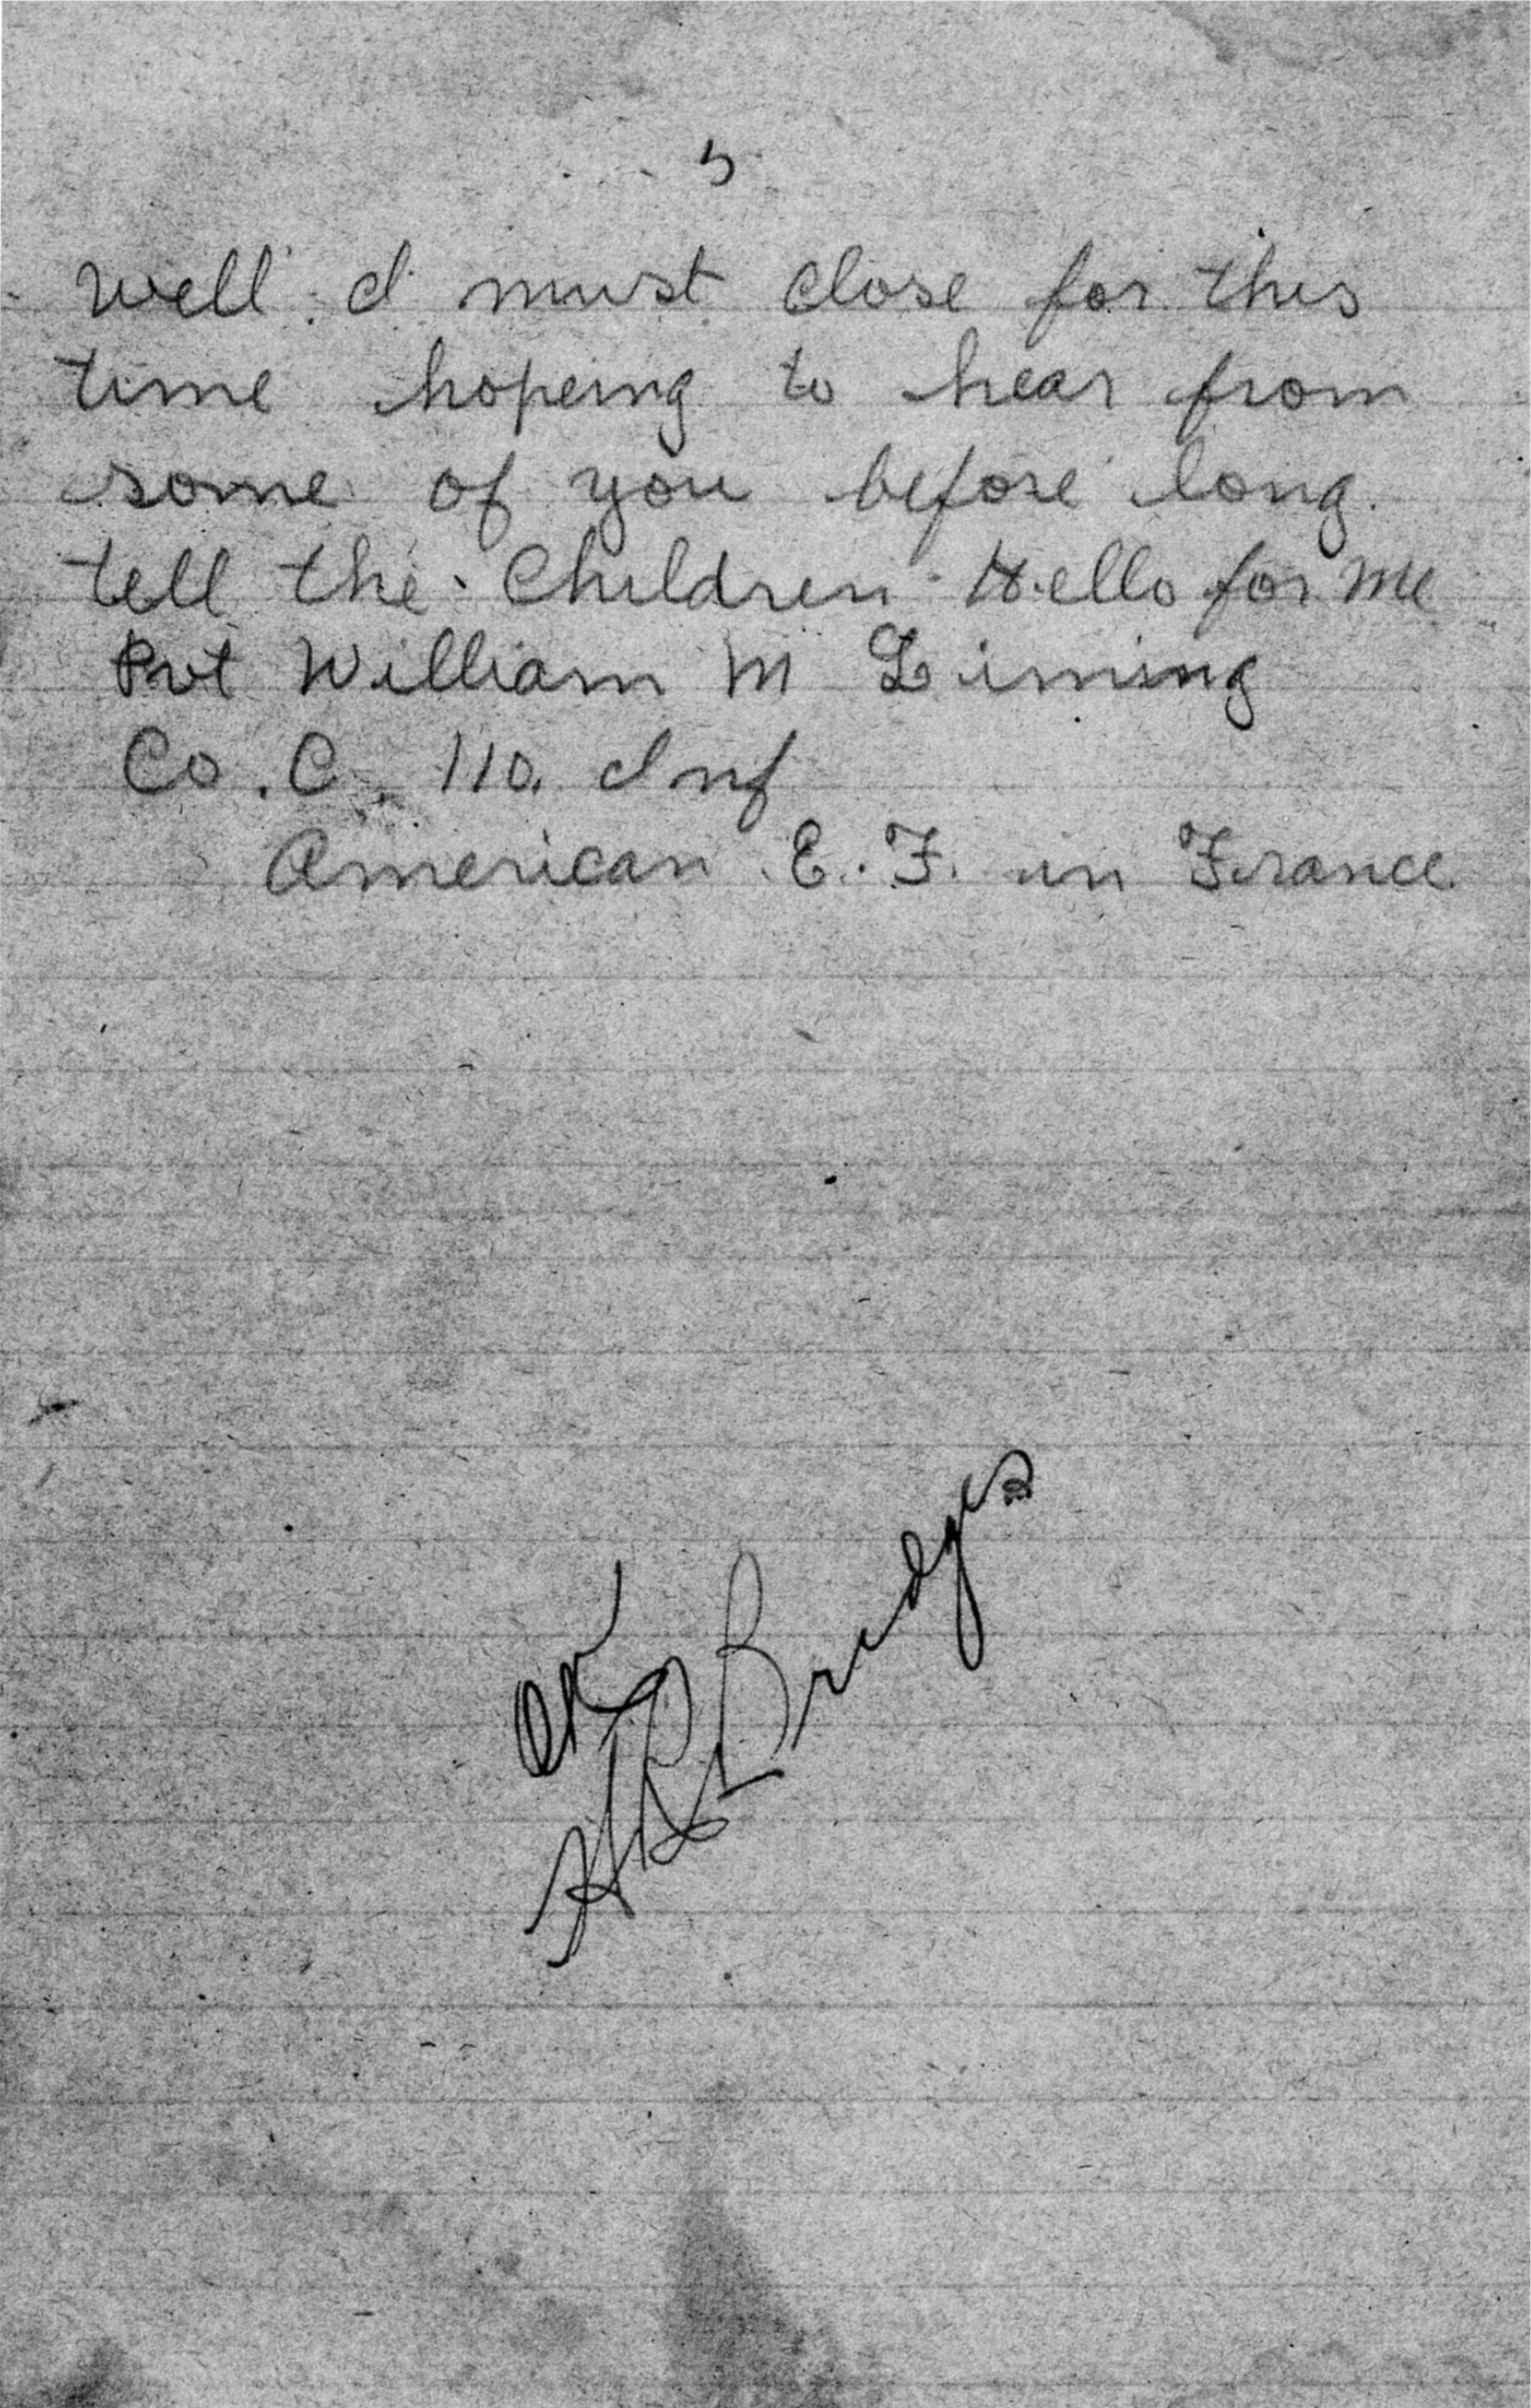 5
well I must close for this
time hopeing to hear from
some of you before long.
tell the Children Hello for me
Pvt William M Liming
Co. C. 110. Inf
American E. F. in France.
OK
HR Bridges